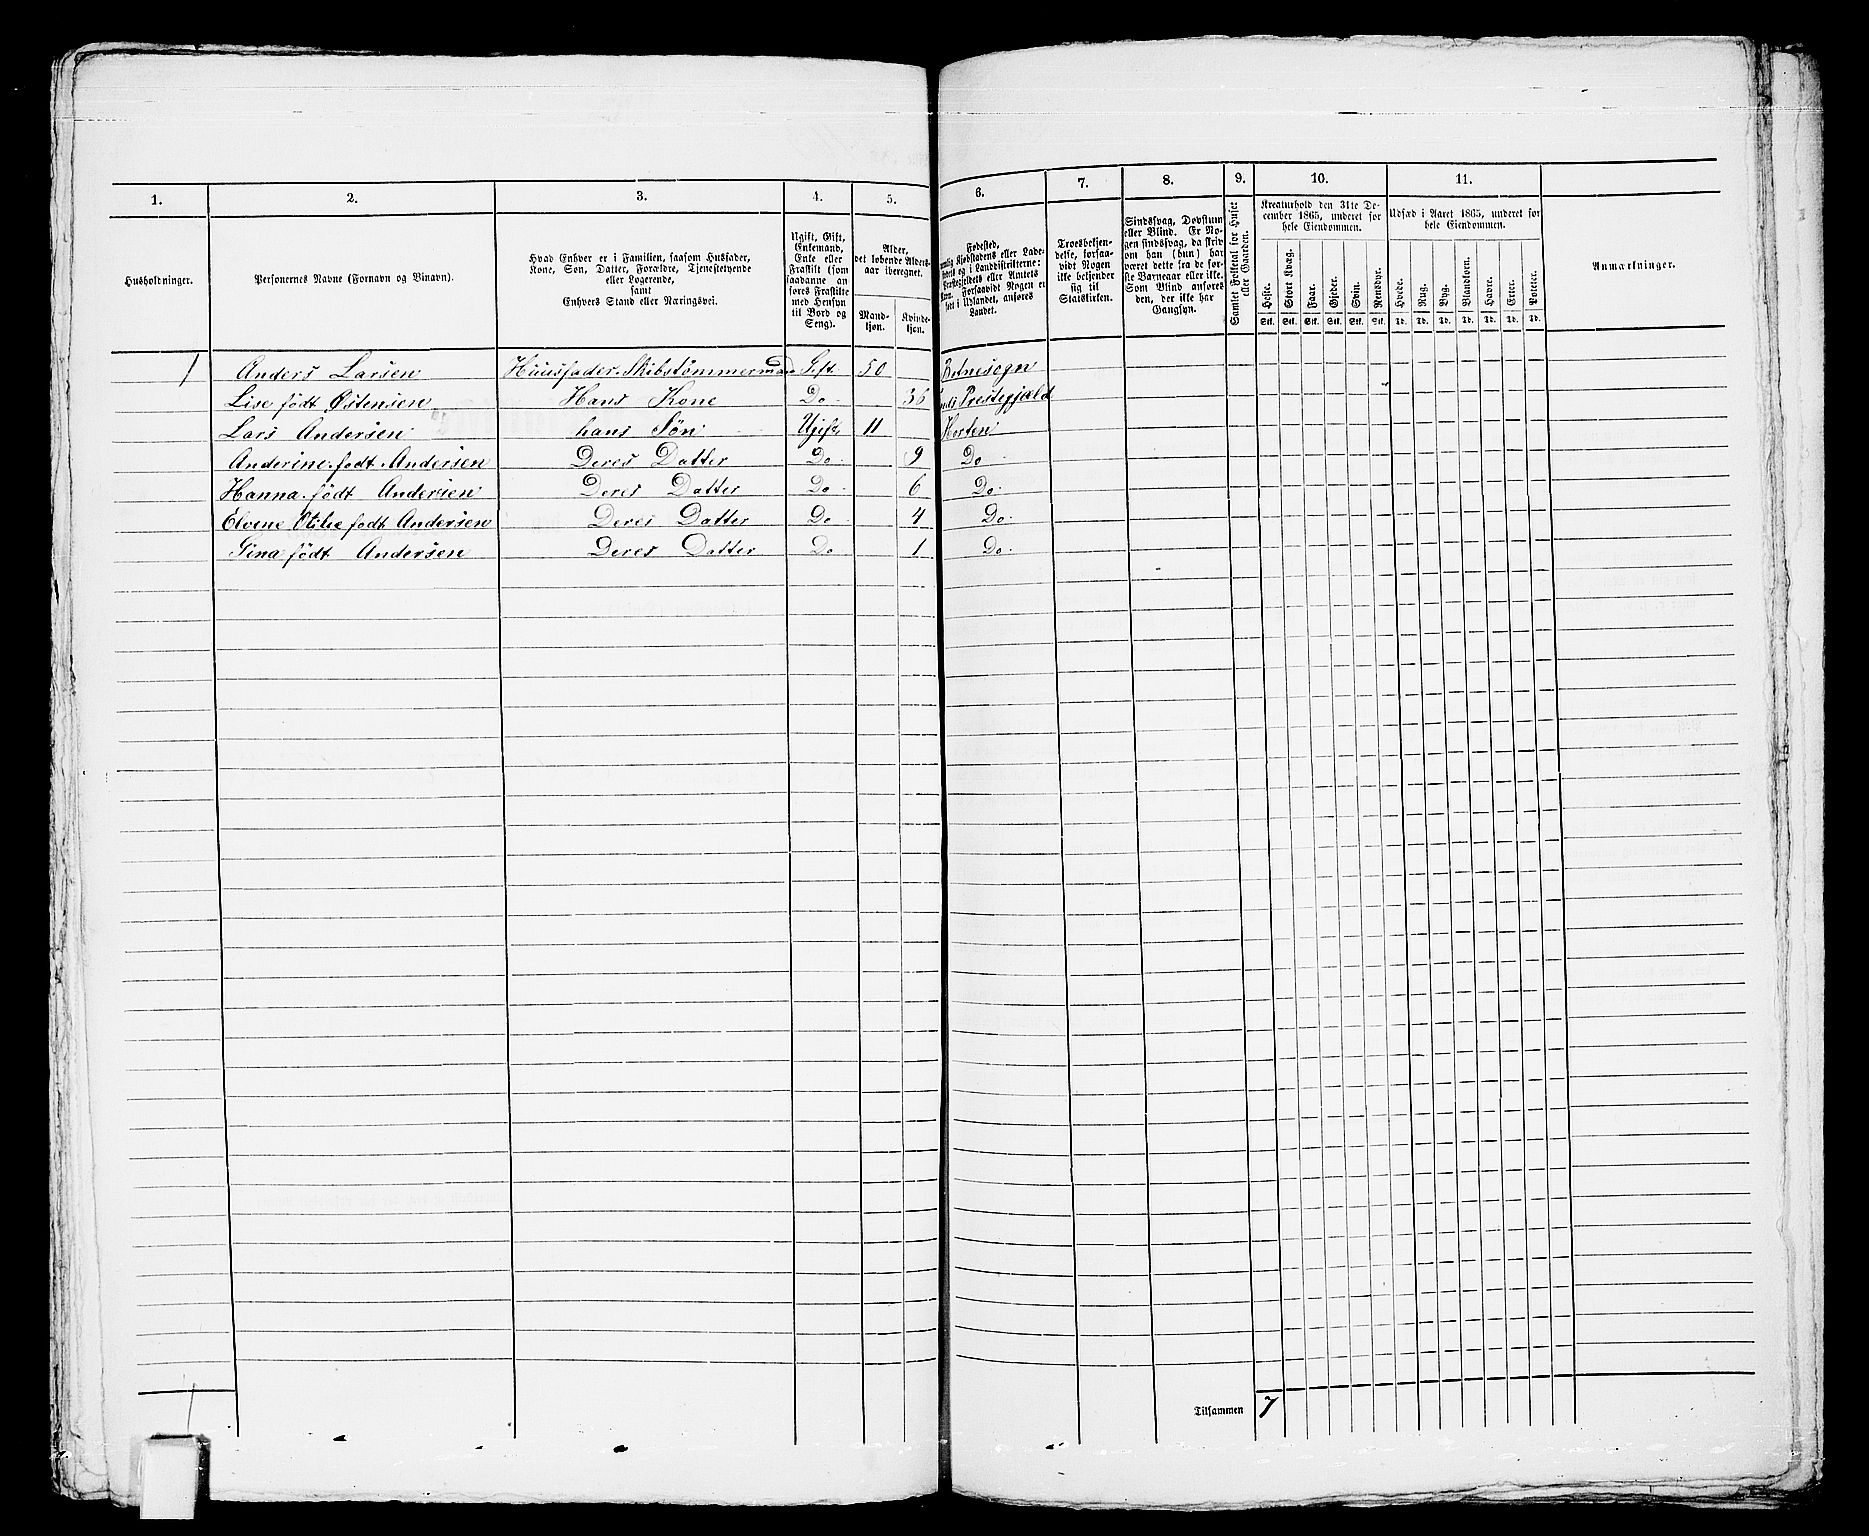 1. 2. 3. 4. 5. 6. 7. 8. 9. 10. 11.
Husholdninger.
Personernes Navne (Fornavn og Binavn).
Hvad Enhver er i Familien, saasom Husfader,
Kone, Søn, Datter, Forældre, Tjenestetyende
eller Logerende,
samt
Enhvers Stand eller Næringsvei.
Ugift, Gift,
Enkemand,
Enke eller
Fraskilt (som
saadanne an-
føres Fraskilte
med Hensyn
til Bord og
Seng).
Alder,
det løbende Alders-
aar iberegnet.
Mand-
kjøn.
Kvinde-
kjøn.
Fødested,
Kjøbstadens eller Lade-
og i Landdistrikterne:
eller Amtets
Forsaavidt Nogen er
født i Udlandet, anføres
Landet.
Troesbekjen-
delse, forsaa-
vidt Nogen
ikke bekjender
sig til
Statskirken.
Sindssvag, Døvstum
eller Blind. Er No-
gen sindssvag, da skriv
om han (hun) har
været dette fra de før-
ste Barneaar eller ikke.
Som Blind anføres
den, der ikke har
Gangsyn.
Samlet Folketal for Huset
eller Gaarden.
Kreaturhold den 31te De-
cember 1865, underet for
hele Eiendommen.
Heste. Stort Kvæg. Faar. Gjeder. Svin. Rensdyr.
Stk. Stk. Stk. Stk. Stk. Stk.
Udsæd i Aaret 1865, underet for
hele Eiendommen.
Hvede. Rug. Byg. Blandkorn. Havre. Erter. Poteter.
Td. Td. Td. Td. Td. Td. Td.
Anmærkninger.
1 Anders Larsen Huusfader. Skibstømmermand Gift 50 Botnesogn
Lise født Østensen Hans Kone Do 36 Prestegjæld
Lars Andersen hans Søn Ugift 11 Horten
Anderine født Andersen Deres Datter Do 9 Do
Hanna født Andersen Deres Datter Do 6 Do
Elvene Otilie født Andersen Deres Datter Do 4 Do
Sina født Andersen Deres Datter Do 1 Do
1
Tilsammen 7